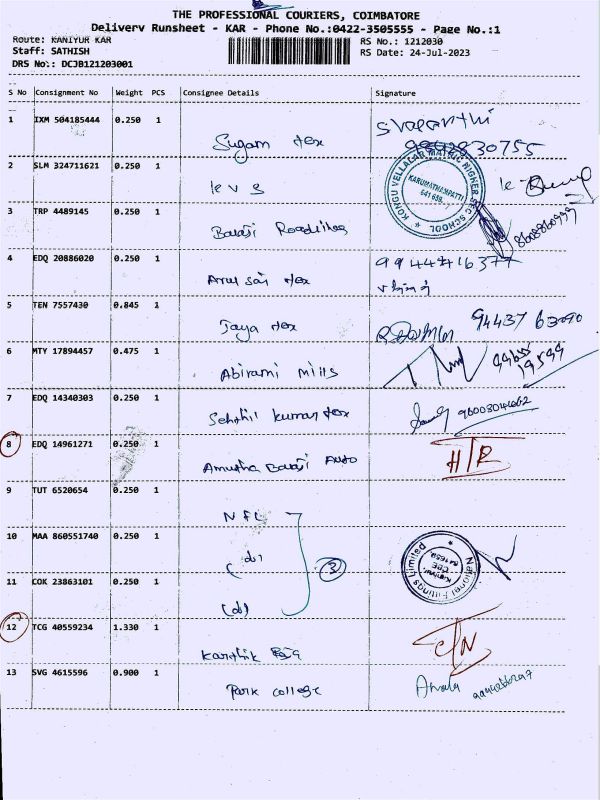 THE PROFESSIONAL COURIERS, COIMBATORE
Delivery Runsheet - KAR - Phone No.:0422-3505555 - Page No.:1
Route: KANIYUR KAR
RS No.: 1212030
Staff: SATHISH
RS Date: 24-Jul-2023
DRS No.: DCJB121203001
S No Consignment No Weight PCS Consignee Details Signature
1 IXM 504185444 0.250 1
Sugam tex
2 SLM 324711621 0.250 1
k v s
KONGU VELLALAR MATRIC HIGHER SEC SCHOOL
KARUMATHAMPATTI
3 TRP 4489145 0.250 1
Balaji Roadlines
4 EDQ 20886020 0.250 1
Arul sai tex
9944416377
5 TEN 7557430 0.845 1
Jaya tex
94437
6 MTY 17894457 0.475 1
Abirami mills
7 EDQ 14340303 0.250 1
Senthil kumar tex
8 EDQ 14961271 0.250 1
Amutha Balaji Auto
H/R
9 TUT 6520654 0.250 1
NFL
10 MAA 860551740 0.250 1
(do)
3
National Fittings Limited
Kaniyur
CBE
641659
11 COK 23863101 0.250 1
(do)
12 TCG 40559234 1.330 1
Karthik
C/N
13 SVG 4615596 0.900 1
Park college